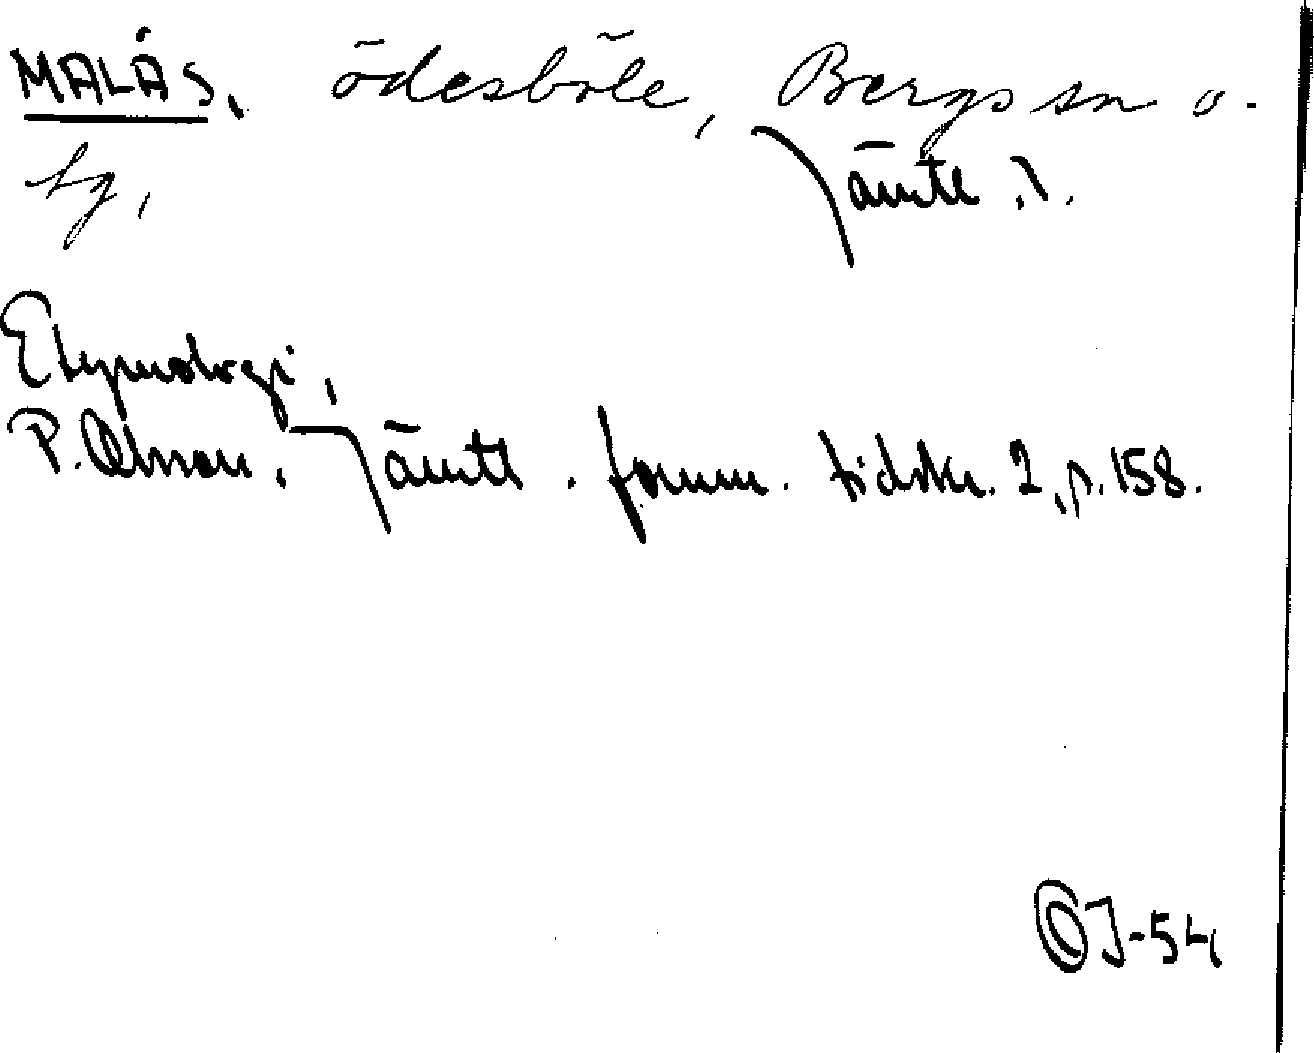 MALÅS. ödesböle, Bergs sn o.
tg, Jämtl. l.
Etymologi,
P. Olsson. Jämtl. fornm. tidskr. 2, p. 158.
OJ-54